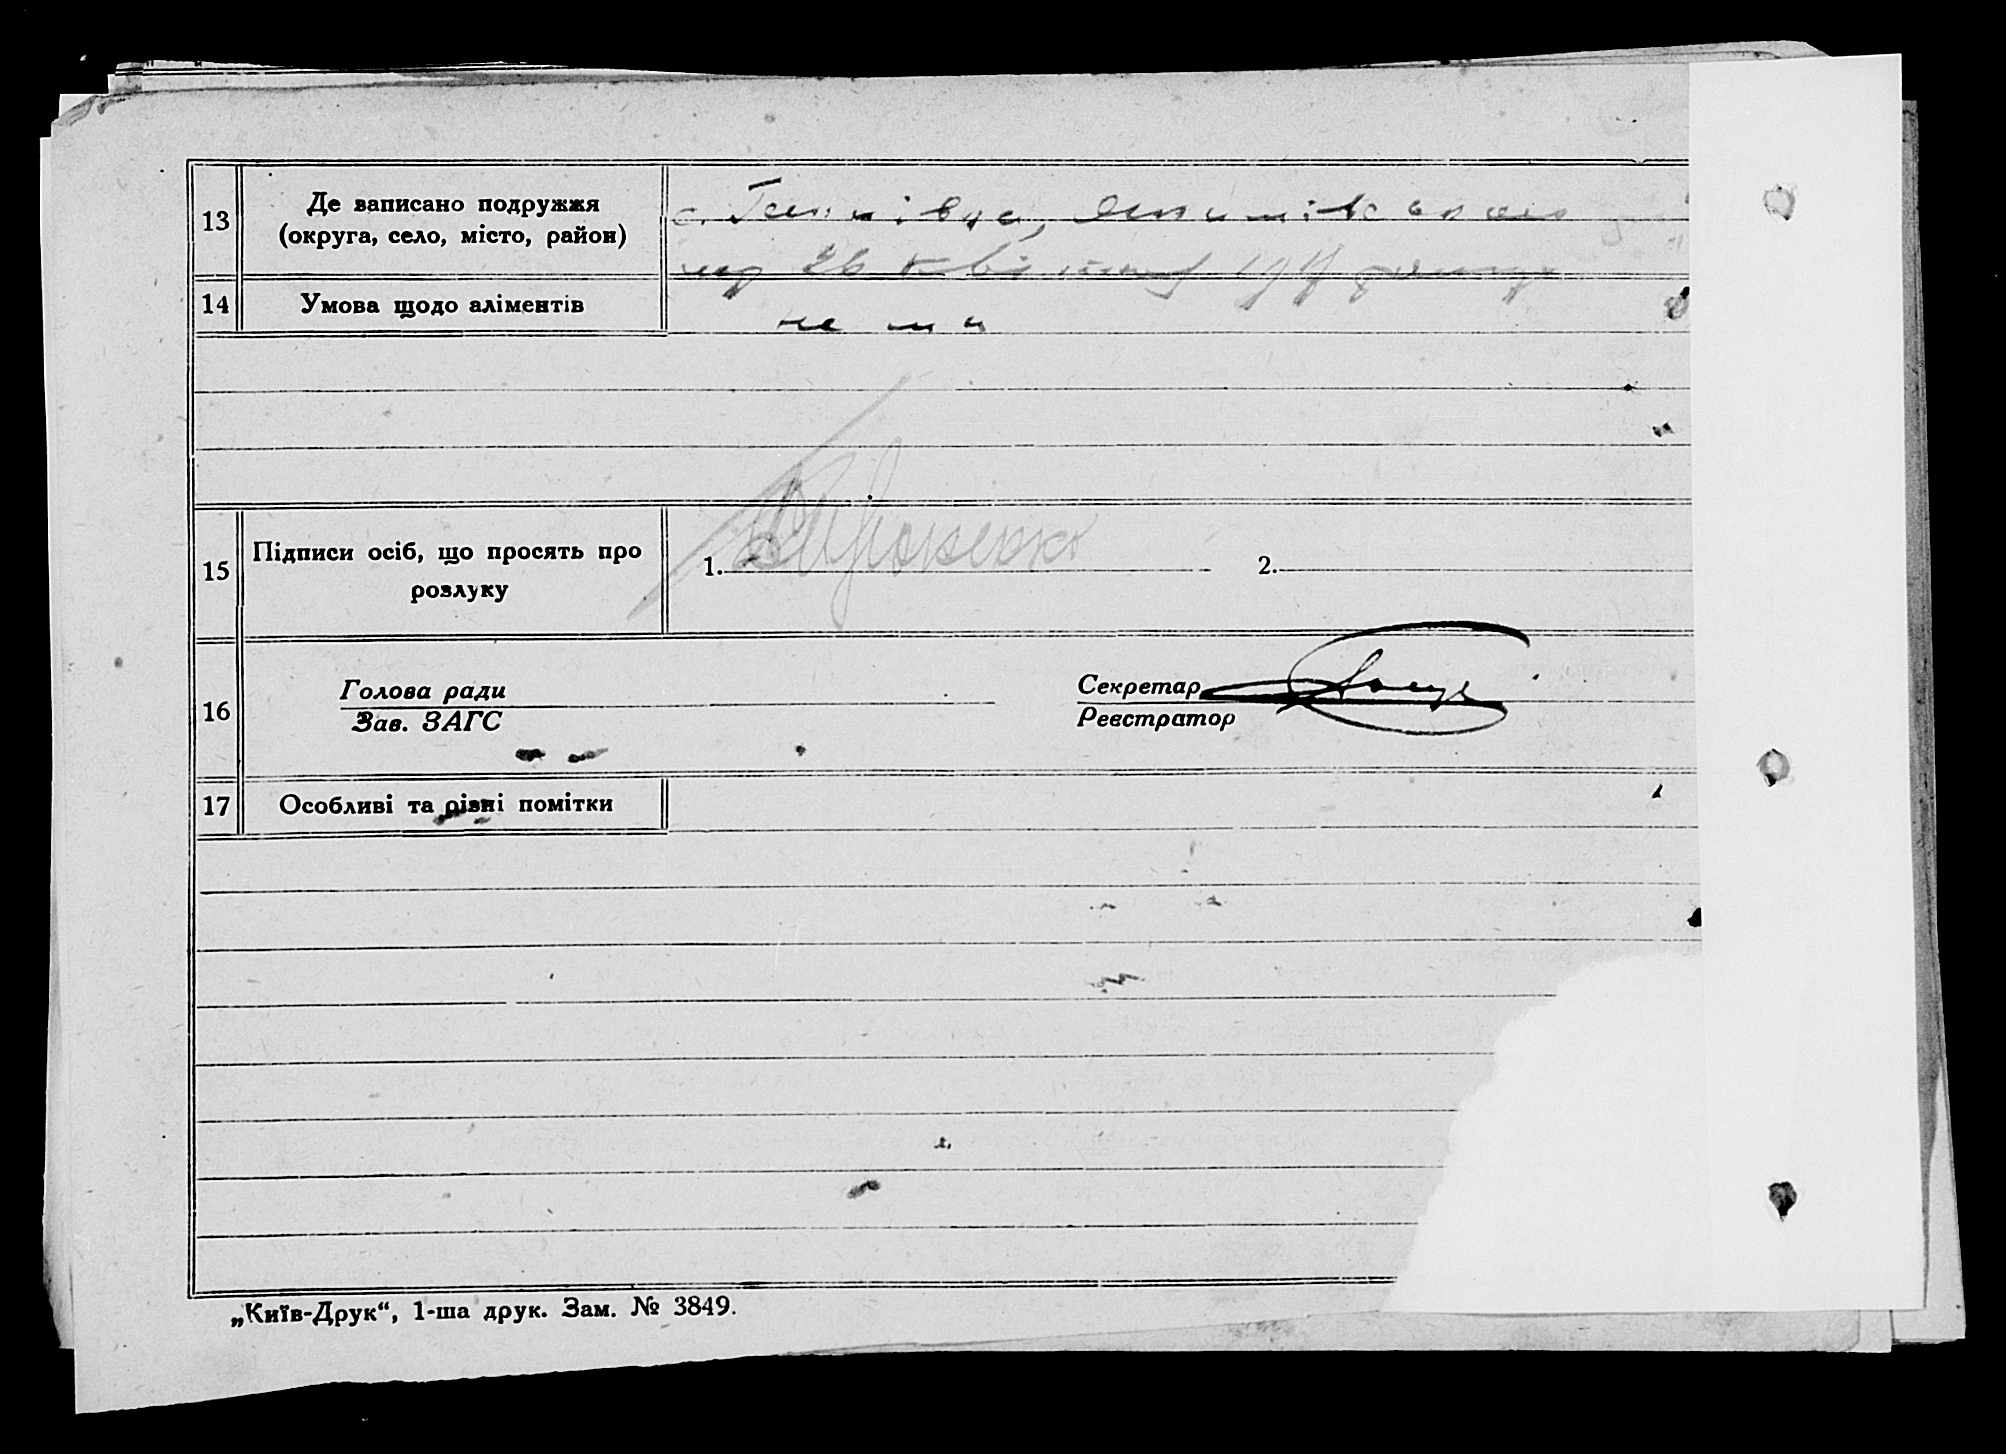 13 Де записано подружжя
(округа, село, місто, район)
с.
26 квітня
14 Умова щодо аліментів
нема
15 Підписи осіб, що просять про
розлуку
1. 2.
16 Голова ради
Зав. ЗАГС
Секретар
Реєстратор
17 Особливі та різні помітки
„Київ-Друк“, 1-ша друк. Зам. № 3849.